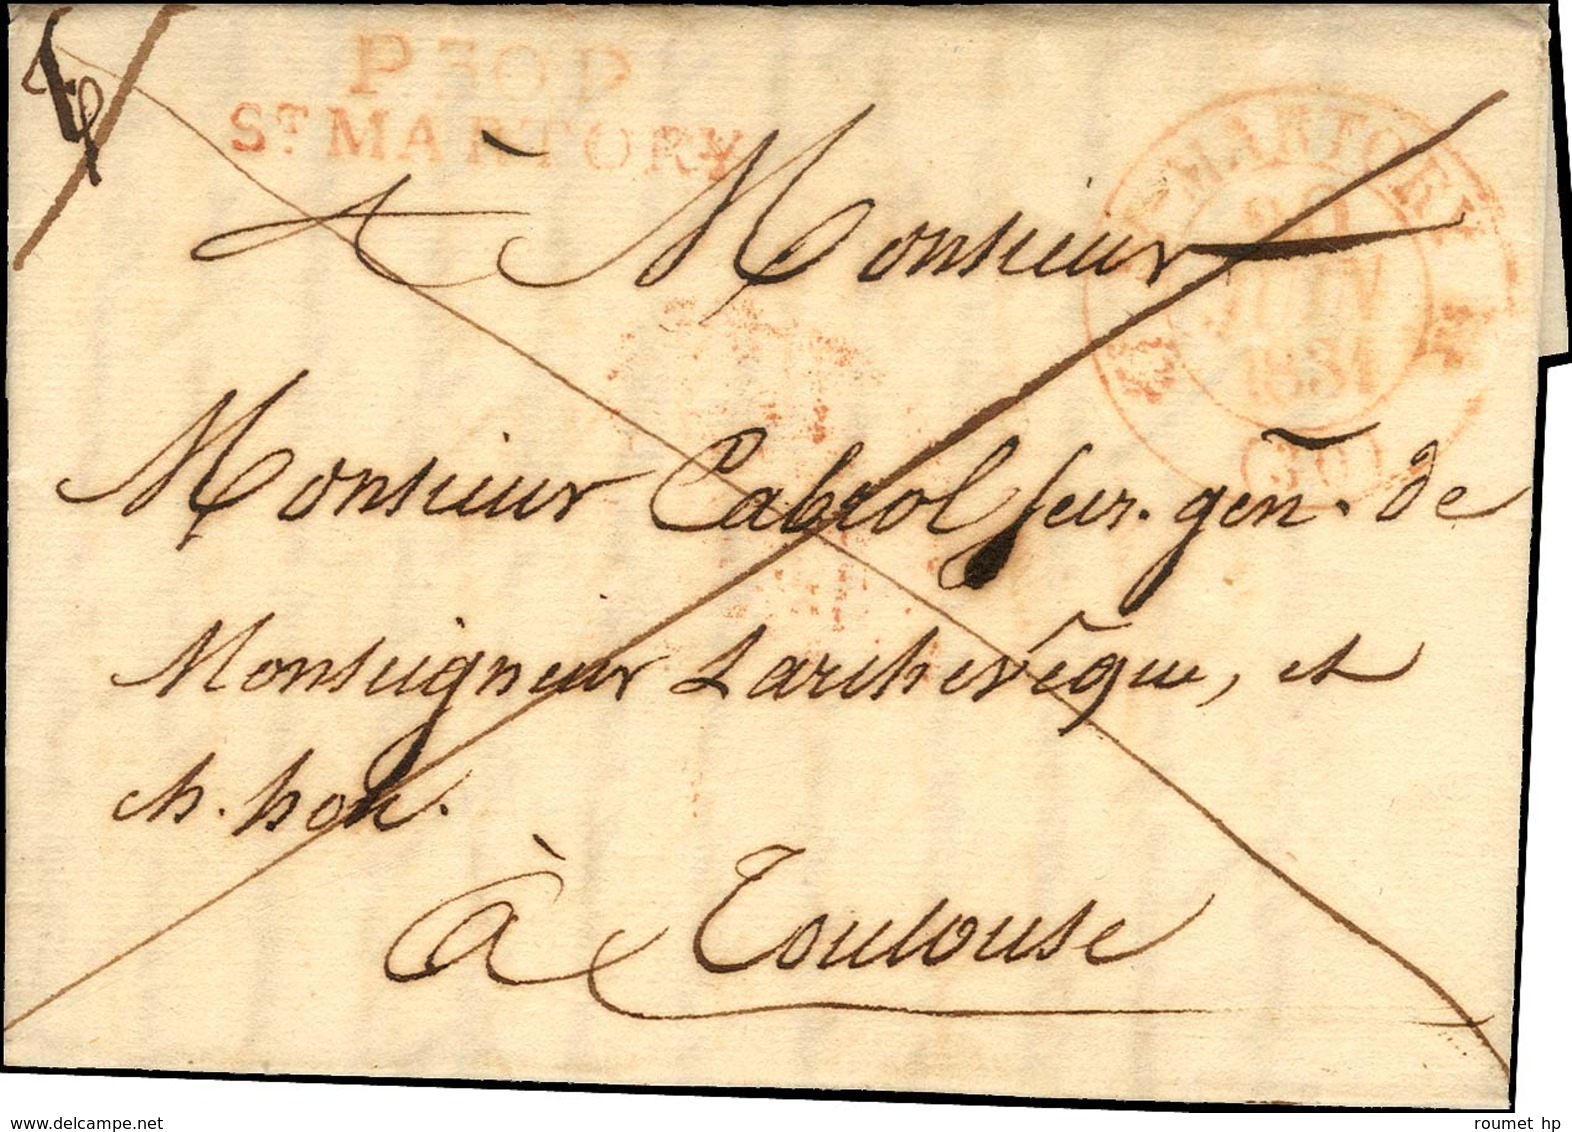 P30P
ST. MARTORY
ST MARTORY
20
JUIN
1831
(30)
à Monsieur
Monsieur Cabrol secr. gén. de
Monseigneur Larchevêque, et
ch. hon.
à Toulouse
www.delcampe.net
roumet hp